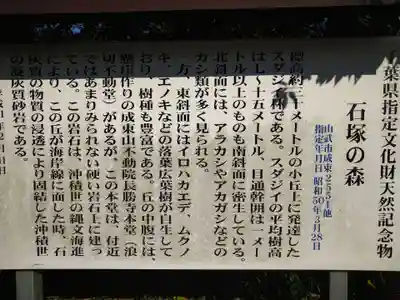 千葉県指定文化財天然記念物
石塚の森
山武市成東2551他
指定年月日 昭和50年3月28日
標高約二十メートルの小丘上に発達した
スダジイ林である。スダジイの平均樹高
はし十五メートル、目通幹囲は一メー
トル以上のものも南斜面に密生している。
北斜面には、アラカシやアカガシなどの
カシ類が多く見られる。
一方、東斜面にはイロハカエデ、ムクノ
キ、エノキなどの落葉広葉樹が自生して
おり、樹種も豊富である。丘の中腹には、
懸崖作りの成東山不動院長勝寺本堂（浪
切不動堂）があるが、この本堂は、付近
ではあまりみられない硬い岩石上に建っ
ている。この岩石は、沖積世の縄文海進
により、この丘が海岸線に面した時、石
灰質の物質の浸透により固結した沖積世
の凝灰質砂岩である。